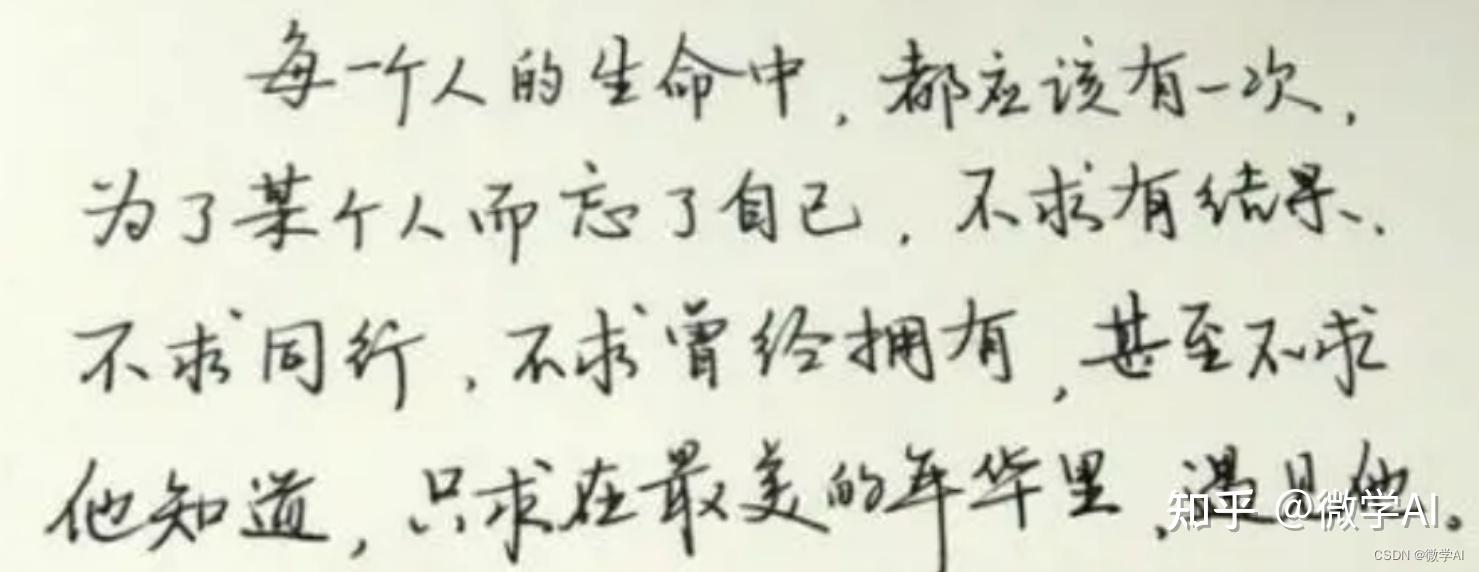 每一个人的生命中，都应该有一次，
为了某个人而忘了自己，不求有结果、
不求同行，不求曾经拥有，甚至不求
他知道，只求在最美的年华里，遇见他。
知乎 @微学AI
CSDN @微学AI